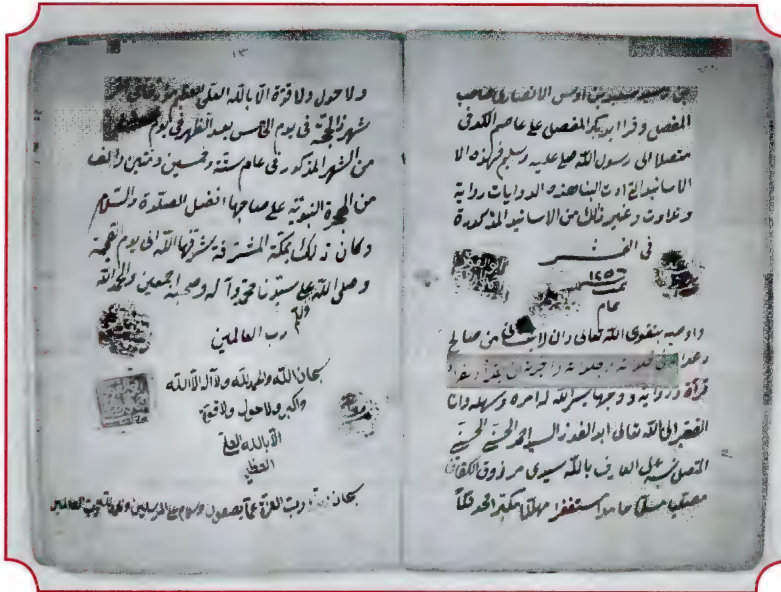 الانصارى صاحب
المفضل وقرا ابو بكر المفضل على عاصم الكوفى
متصلا الى رسول الله صلى عليه وسلم فهذه الا
الاسانيد التى ادت الينا هذه الروايات رواية
وتلاوت وغير ذلك من الاسانيد المذكورة
فى النشر
١٢٥٦
تمام
واوصيه بتقوى الله تعالى وان لا من صالح
دعواه فى خلواته وجلواته واجزته ان يقرأ
قرأة ورواية ووجها يسر الله له امره وسهله وانا
الفقير الى الله تعالى ابو الفوز السيد احمد الحسنى الحسينى
المتصل نسبه الى العارف بالله سيدى مرزوق الكفافى
مصليا مسلما حامدا مستغفرا مهللا مكبرا
١٣
ولا حول ولا قوة الا بالله العلى العظيم
شهر الحجة فى يوم الخامس بعد الظهر فى يوم
من الشهر المذكور فى عام ستة وخمسين ومئتين والف
من الهجرة النبوية على صاحبها افضل الصلوة والسلام
وكان ذلك بمكة المشرفة شرفها الله الى يوم القيمة
وصلى الله على سيدنا محمد وآله وصحبه اجمعين والحمد لله
رب العالمين
سبحان الله والحمد لله ولا اله الا الله
واكبر ولا حول ولا قوة
الا بالله العلى
العظيم
سبحان ربك رب العزة عما يصفون وسلام على المرسلين والحمد لله رب العالمين